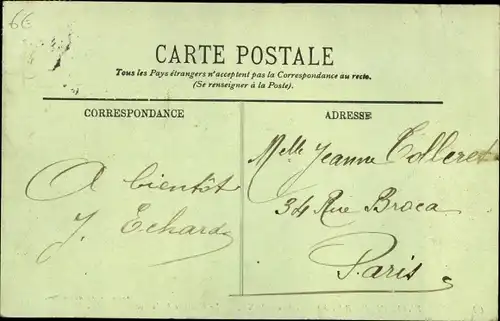 6E
CARTE POSTALE
Tous les Pays étrangers n'acceptent pas la Correspondance au recto.
(Se renseigner à la Poste).
CORRESPONDANCE
A bientôt
J. Echard
ADRESSE
Melle Jeanne Tolleret
34 Rue Broca
Paris